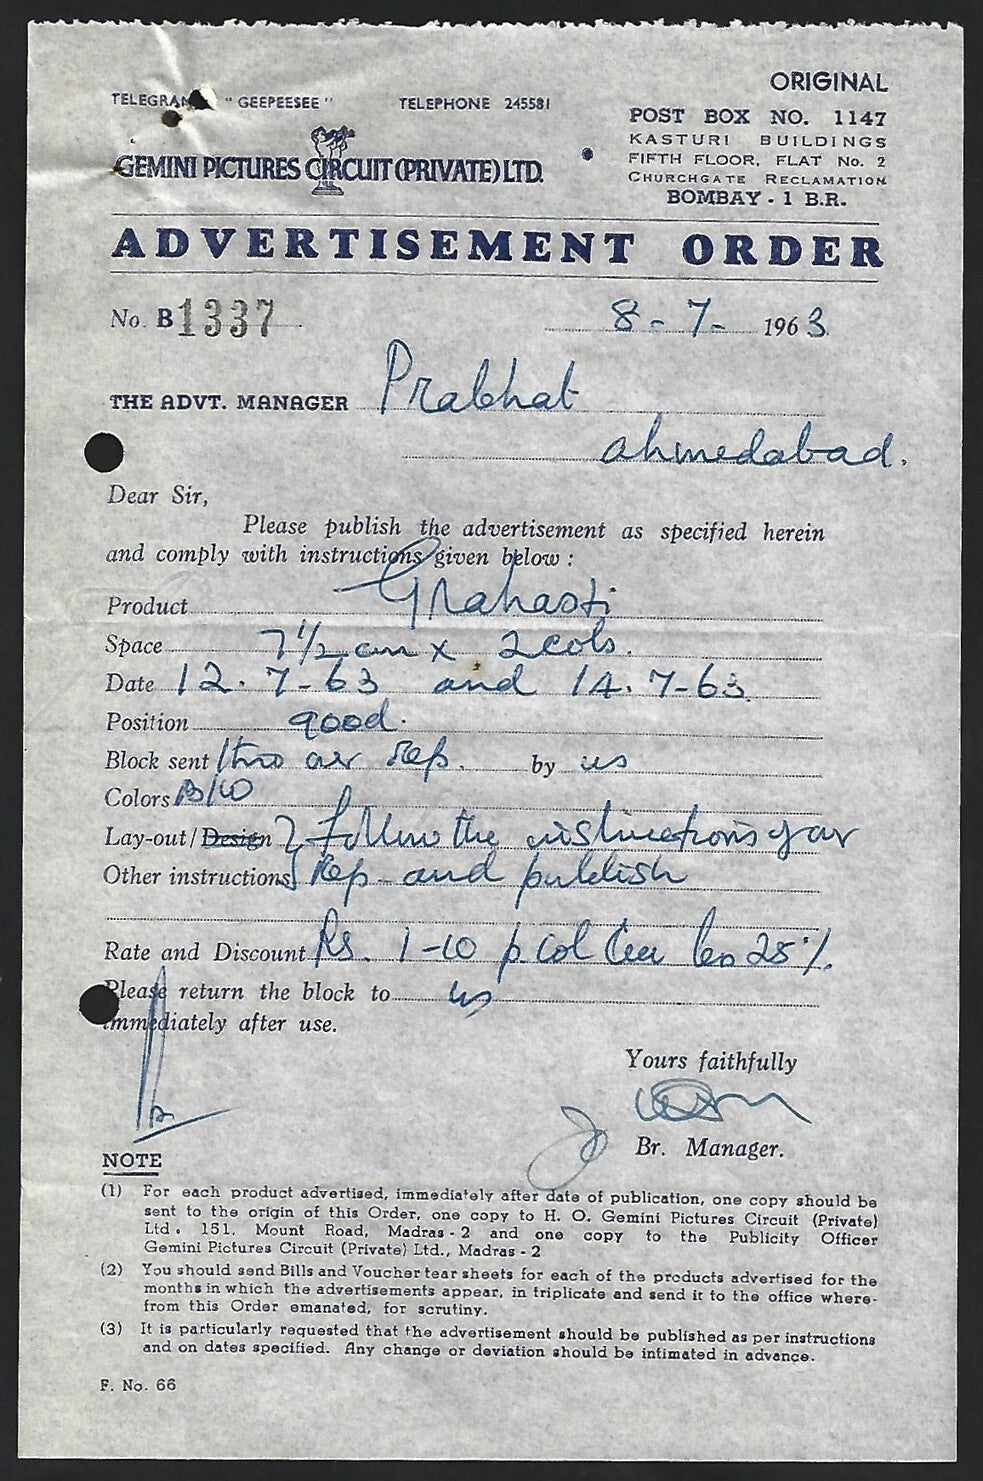 ORIGINAL
TELEGRAM "GEEPEESEE" TELEPHONE 245581
POST BOX NO. 1147
KASTURI BUILDINGS
FIFTH FLOOR, FLAT No. 2
CHURCHGATE RECLAMATION
BOMBAY - 1 B.R.
GEMINI PICTURES CIRCUIT (PRIVATE) LTD.
ADVERTISEMENT ORDER
No. B 1337 8 - 7 - 1963
THE ADVT. MANAGER Prabhat
ahmedabad.
Dear Sir,
Please publish the advertisement as specified herein
and comply with instructions given below :
Product Grahasti
Space 7 1/2 cm x 2 cols.
Date 12.7-63 and 14.7-63
Position good.
Block sent thro our Rep. by us
Colors B/W
Lay-out/Design } follow the instructions of our
Other instructions } Rep and publish
Rate and Discount Rs. 1-10 p col less 25%.
Please return the block to us
immediately after use.
Yours faithfully
Br. Manager.
NOTE
(1) For each product advertised, immediately after date of publication, one copy should be
sent to the origin of this Order, one copy to H. O. Gemini Pictures Circuit (Private)
Ltd. 151, Mount Road, Madras - 2 and one copy to the Publicity Officer
Gemini Pictures Circuit (Private) Ltd., Madras - 2
(2) You should send Bills and Voucher tear sheets for each of the products advertised for the
months in which the advertisements appear, in triplicate and send it to the office where-
from this Order emanated, for scrutiny.
(3) It is particularly requested that the advertisement should be published as per instructions
and on dates specified. Any change or deviation should be intimated in advance.
F. No. 66